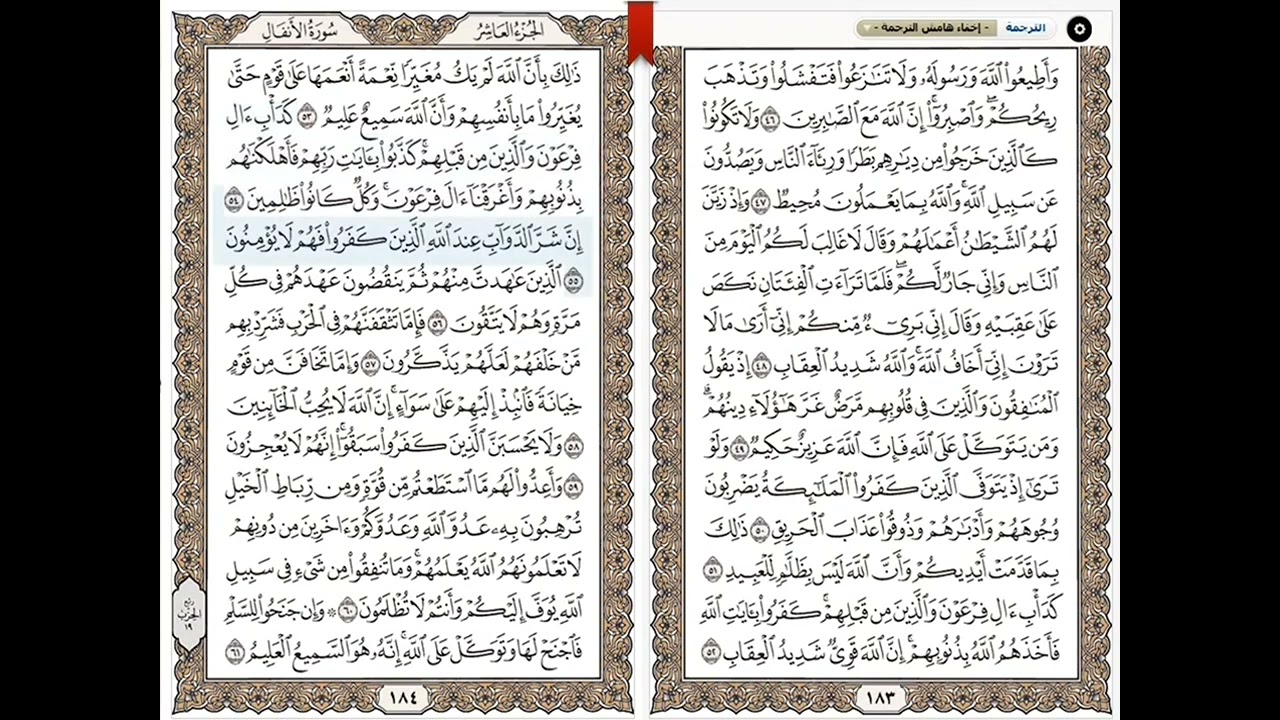 الترجمة
- إخفاء هامش الترجمة -
وَأَطِيعُوا۟ ٱللَّهَ وَرَسُولَهُۥ وَلَا تَنَٰزَعُوا۟ فَتَفْشَلُوا۟ وَتَذْهَبَ
رِيحُكُمْ ۖ وَٱصْبِرُوٓا۟ ۚ إِنَّ ٱللَّهَ مَعَ ٱلصَّٰبِرِينَ ٤٦ وَلَا تَكُونُوا۟
كَٱلَّذِينَ خَرَجُوا۟ مِن دِيَٰرِهِم بَطَرًا وَرِئَآءَ ٱلنَّاسِ وَيَصُدُّونَ
عَن سَبِيلِ ٱللَّهِ ۚ وَٱللَّهُ بِمَا يَعْمَلُونَ مُحِيطٌ ٤٧ وَإِذْ زَيَّنَ
لَهُمُ ٱلشَّيْطَٰنُ أَعْمَٰلَهُمْ وَقَالَ لَا غَالِبَ لَكُمُ ٱلْيَوْمَ مِنَ
ٱلنَّاسِ وَإِنِّى جَارٌ لَّكُمْ ۖ فَلَمَّا تَرَآءَتِ ٱلْفِئَتَانِ نَكَصَ
عَلَىٰ عَقِبَيْهِ وَقَالَ إِنِّى بَرِىٓءٌ مِّنكُمْ إِنِّىٓ أَرَىٰ مَا لَا
تَرَوْنَ إِنِّىٓ أَخَافُ ٱللَّهَ ۚ وَٱللَّهُ شَدِيدُ ٱلْعِقَابِ ٤٨ إِذْ يَقُولُ
ٱلْمُنَٰفِقُونَ وَٱلَّذِينَ فِى قُلُوبِهِم مَّرَضٌ غَرَّ هَٰٓؤُلَآءِ دِينُهُمْ ۗ
وَمَن يَتَوَكَّلْ عَلَى ٱللَّهِ فَإِنَّ ٱللَّهَ عَزِيزٌ حَكِيمٌ ٤٩ وَلَوْ
تَرَىٰٓ إِذْ يَتَوَفَّى ٱلَّذِينَ كَفَرُوا۟ ٱلْمَلَٰٓئِكَةُ يَضْرِبُونَ
وُجُوهَهُمْ وَأَدْبَٰرَهُمْ وَذُوقُوا۟ عَذَابَ ٱلْحَرِيقِ ٥٠ ذَٰلِكَ
بِمَا قَدَّمَتْ أَيْدِيكُمْ وَأَنَّ ٱللَّهَ لَيْسَ بِظَلَّٰمٍ لِّلْعَبِيدِ ٥١
كَدَأْبِ ءَالِ فِرْعَوْنَ وَٱلَّذِينَ مِن قَبْلِهِمْ ۚ كَفَرُوا۟ بِـَٔايَٰتِ ٱللَّهِ
فَأَخَذَهُمُ ٱللَّهُ بِذُنُوبِهِمْ ۗ إِنَّ ٱللَّهَ قَوِىٌّ شَدِيدُ ٱلْعِقَابِ ٥٢
١٨٣
الجُزْءُ العَاشِرُ
سُورَةُ الأَنفَالِ
ذَٰلِكَ بِأَنَّ ٱللَّهَ لَمْ يَكُ مُغَيِّرًا نِّعْمَةً أَنْعَمَهَا عَلَىٰ قَوْمٍ حَتَّىٰ
يُغَيِّرُوا۟ مَا بِأَنفُسِهِمْ ۙ وَأَنَّ ٱللَّهَ سَمِيعٌ عَلِيمٌ ٥٣ كَدَأْبِ ءَالِ
فِرْعَوْنَ ۙ وَٱلَّذِينَ مِن قَبْلِهِمْ ۚ كَذَّبُوا۟ بِـَٔايَٰتِ رَبِّهِمْ فَأَهْلَكْنَٰهُم
بِذُنُوبِهِمْ وَأَغْرَقْنَآ ءَالَ فِرْعَوْنَ ۚ وَكُلٌّ كَانُوا۟ ظَٰلِمِينَ ٥٤
إِنَّ شَرَّ ٱلدَّوَآبِّ عِندَ ٱللَّهِ ٱلَّذِينَ كَفَرُوا۟ فَهُمْ لَا يُؤْمِنُونَ
٥٥ ٱلَّذِينَ عَٰهَدتَّ مِنْهُمْ ثُمَّ يَنقُضُونَ عَهْدَهُمْ فِى كُلِّ
مَرَّةٍ وَهُمْ لَا يَتَّقُونَ ٥٦ فَإِمَّا تَثْقَفَنَّهُمْ فِى ٱلْحَرْبِ فَشَرِّدْ بِهِم
مَّنْ خَلْفَهُمْ لَعَلَّهُمْ يَذَّكَّرُونَ ٥٧ وَإِمَّا تَخَافَنَّ مِن قَوْمٍ
خِيَانَةً فَٱنۢبِذْ إِلَيْهِمْ عَلَىٰ سَوَآءٍ ۚ إِنَّ ٱللَّهَ لَا يُحِبُّ ٱلْخَآئِنِينَ
٥٨ وَلَا يَحْسَبَنَّ ٱلَّذِينَ كَفَرُوا۟ سَبَقُوٓا۟ ۚ إِنَّهُمْ لَا يُعْجِزُونَ
٥٩ وَأَعِدُّوا۟ لَهُم مَّا ٱسْتَطَعْتُم مِّن قُوَّةٍ وَمِن رِّبَاطِ ٱلْخَيْلِ
تُرْهِبُونَ بِهِۦ عَدُوَّ ٱللَّهِ وَعَدُوَّكُمْ وَءَاخَرِينَ مِن دُونِهِمْ
لَا تَعْلَمُونَهُمُ ٱللَّهُ يَعْلَمُهُمْ ۚ وَمَا تُنفِقُوا۟ مِن شَىْءٍ فِى سَبِيلِ
ٱللَّهِ يُوَفَّ إِلَيْكُمْ وَأَنتُمْ لَا تُظْلَمُونَ ٦٠ ۞ وَإِن جَنَحُوا۟ لِلسَّلْمِ
فَٱجْنَحْ لَهَا وَتَوَكَّلْ عَلَى ٱللَّهِ ۚ إِنَّهُۥ هُوَ ٱلسَّمِيعُ ٱلْعَلِيمُ ٦١
ربع
الحزب
١٩
١٨٤